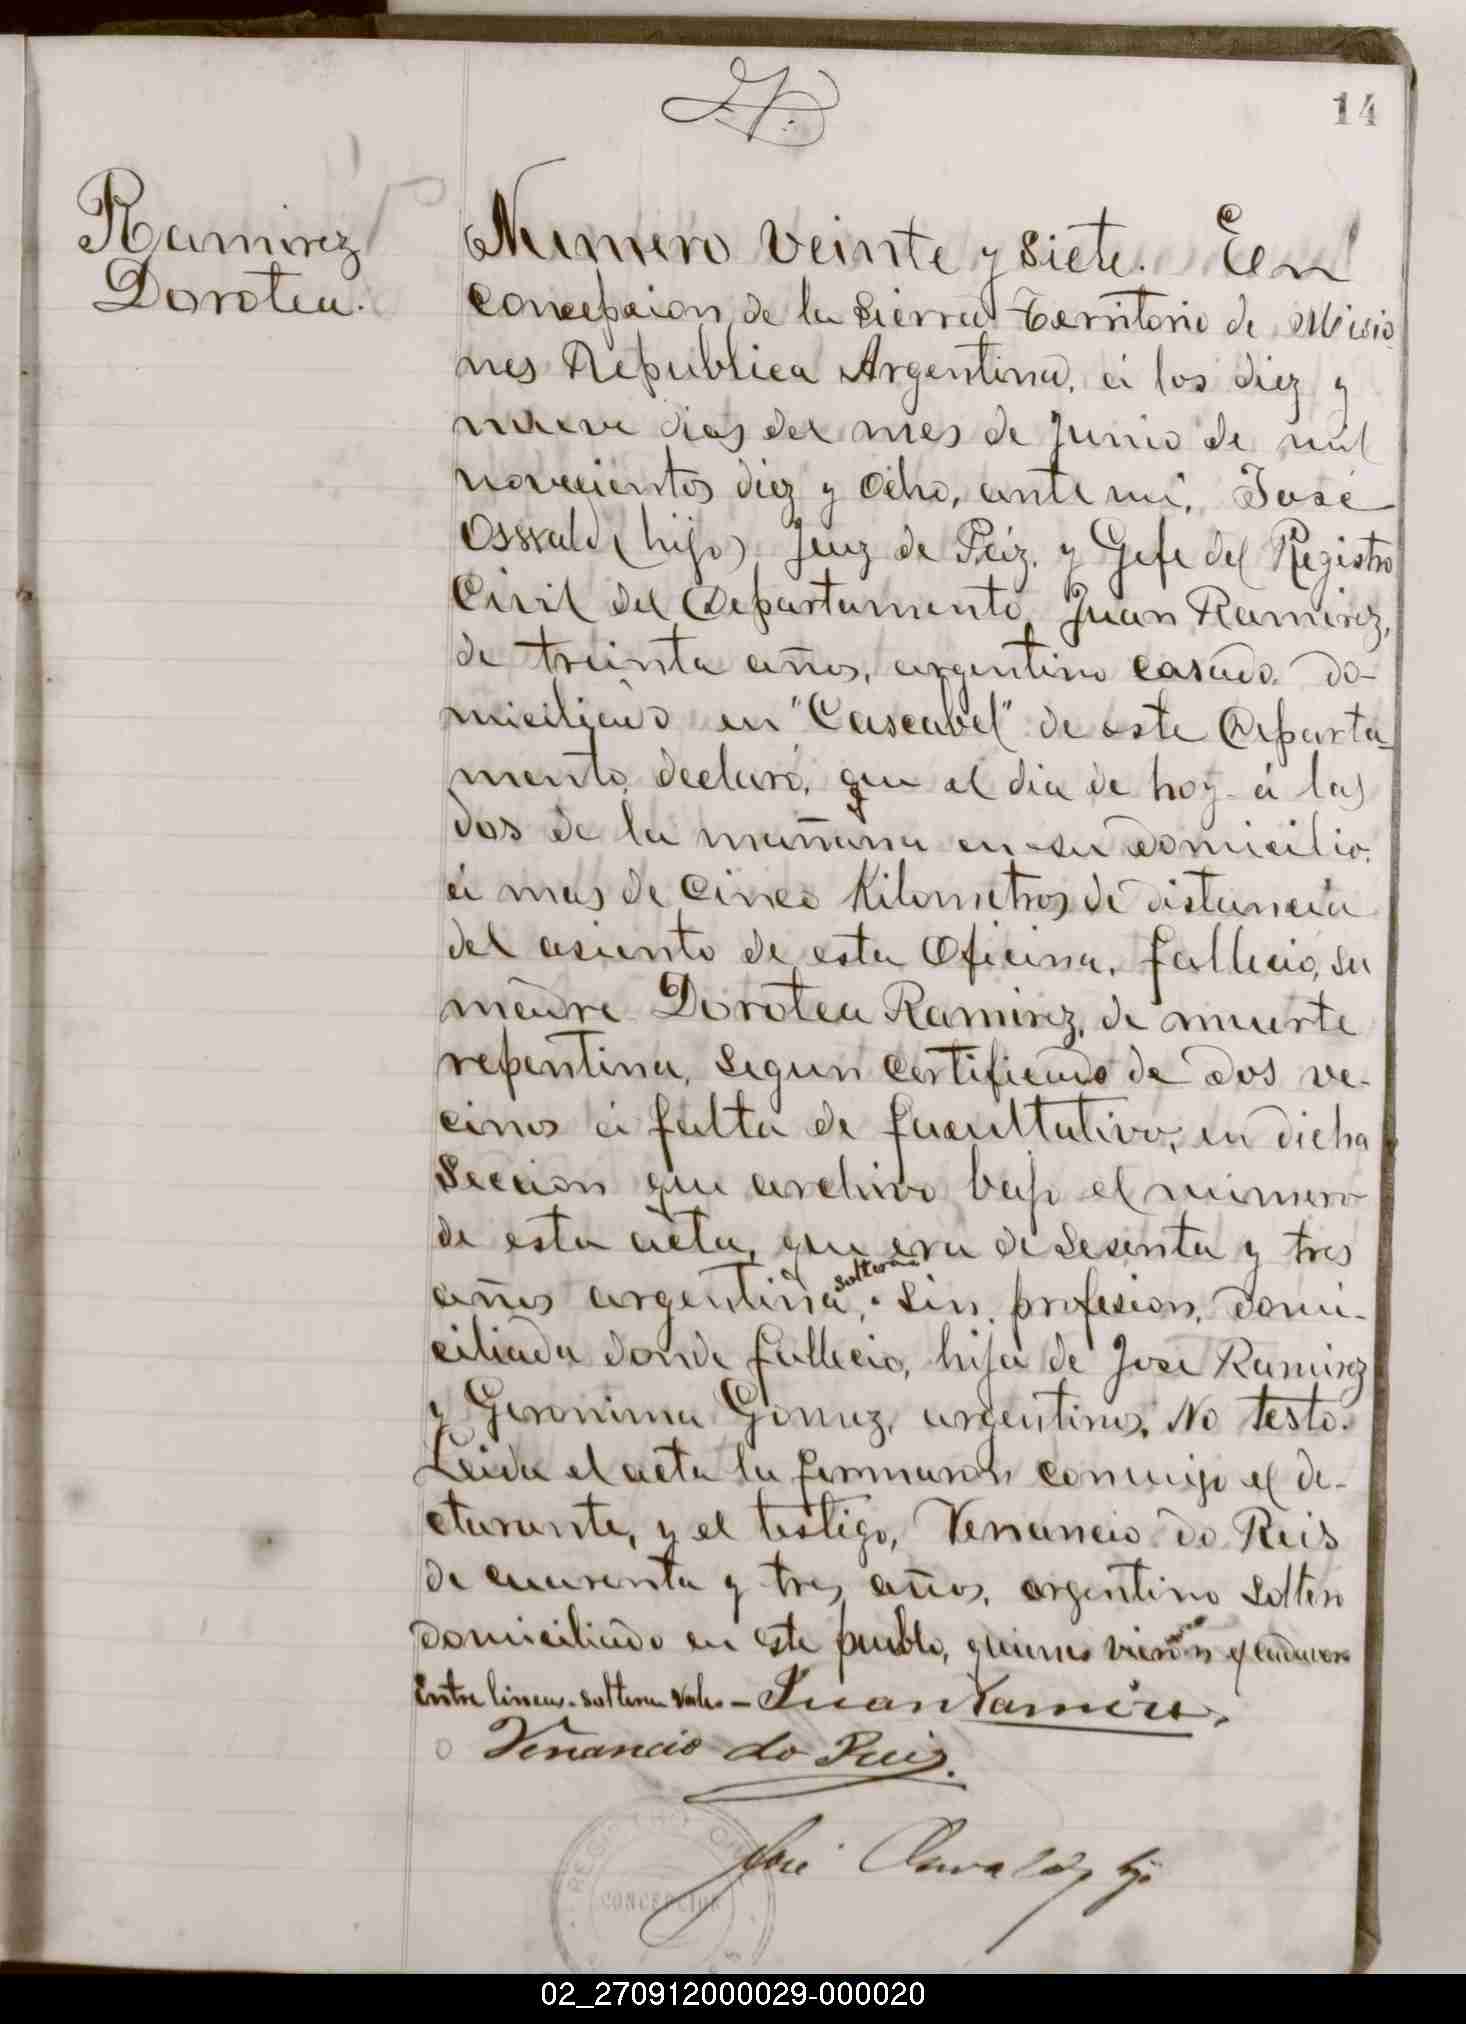 14
Ramirez
Dorotea.
Numero veinte y siete. En
Concepcion de la Sierra Territorio de Misio-
nes Republica Argentina, á los diez y
nueve dias del mes de Junio de mil
novecientos diez y ocho, ante mi, José
Osswald (hijo) Juez de Páz, y Gefe del Registro
Civil del Departamento, Juan Ramirez,
de treinta años, argentino casado, do-
miciliado en "Cascabel" de este Departa-
mento, declaró, que el dia de hoy á las
dos de la mañana en su domicilio,
á mas de cinco Kilometros de distancia
del asiento de esta Oficina, falleció, su
madre Dorotea Ramirez, de muerte
repentina, segun certificado de dos ve-
cinos á falta de facultativo, en dicha
Seccion que archivo bajo el numero
de esta acta, que era de sesenta y tres
años argentina, soltera sin profesion, domi-
ciliada donde fallecio, hija de Jose Ramirez
y Geronima Gomez, argentinos. No testo.
Leida el acta la firmaron conmigo el de-
clarante, y el testigo, Venancio do Reis
de cuarenta y tres años, argentino soltero
domiciliado en este pueblo, quienes vieron el cadaver
Entre lineas - soltera Vale - Juan Ramires,
Venancio do Reis.
José Oswald hijo
REGISTRO CIVIL
CONCEPCION
02_270912000029-000020